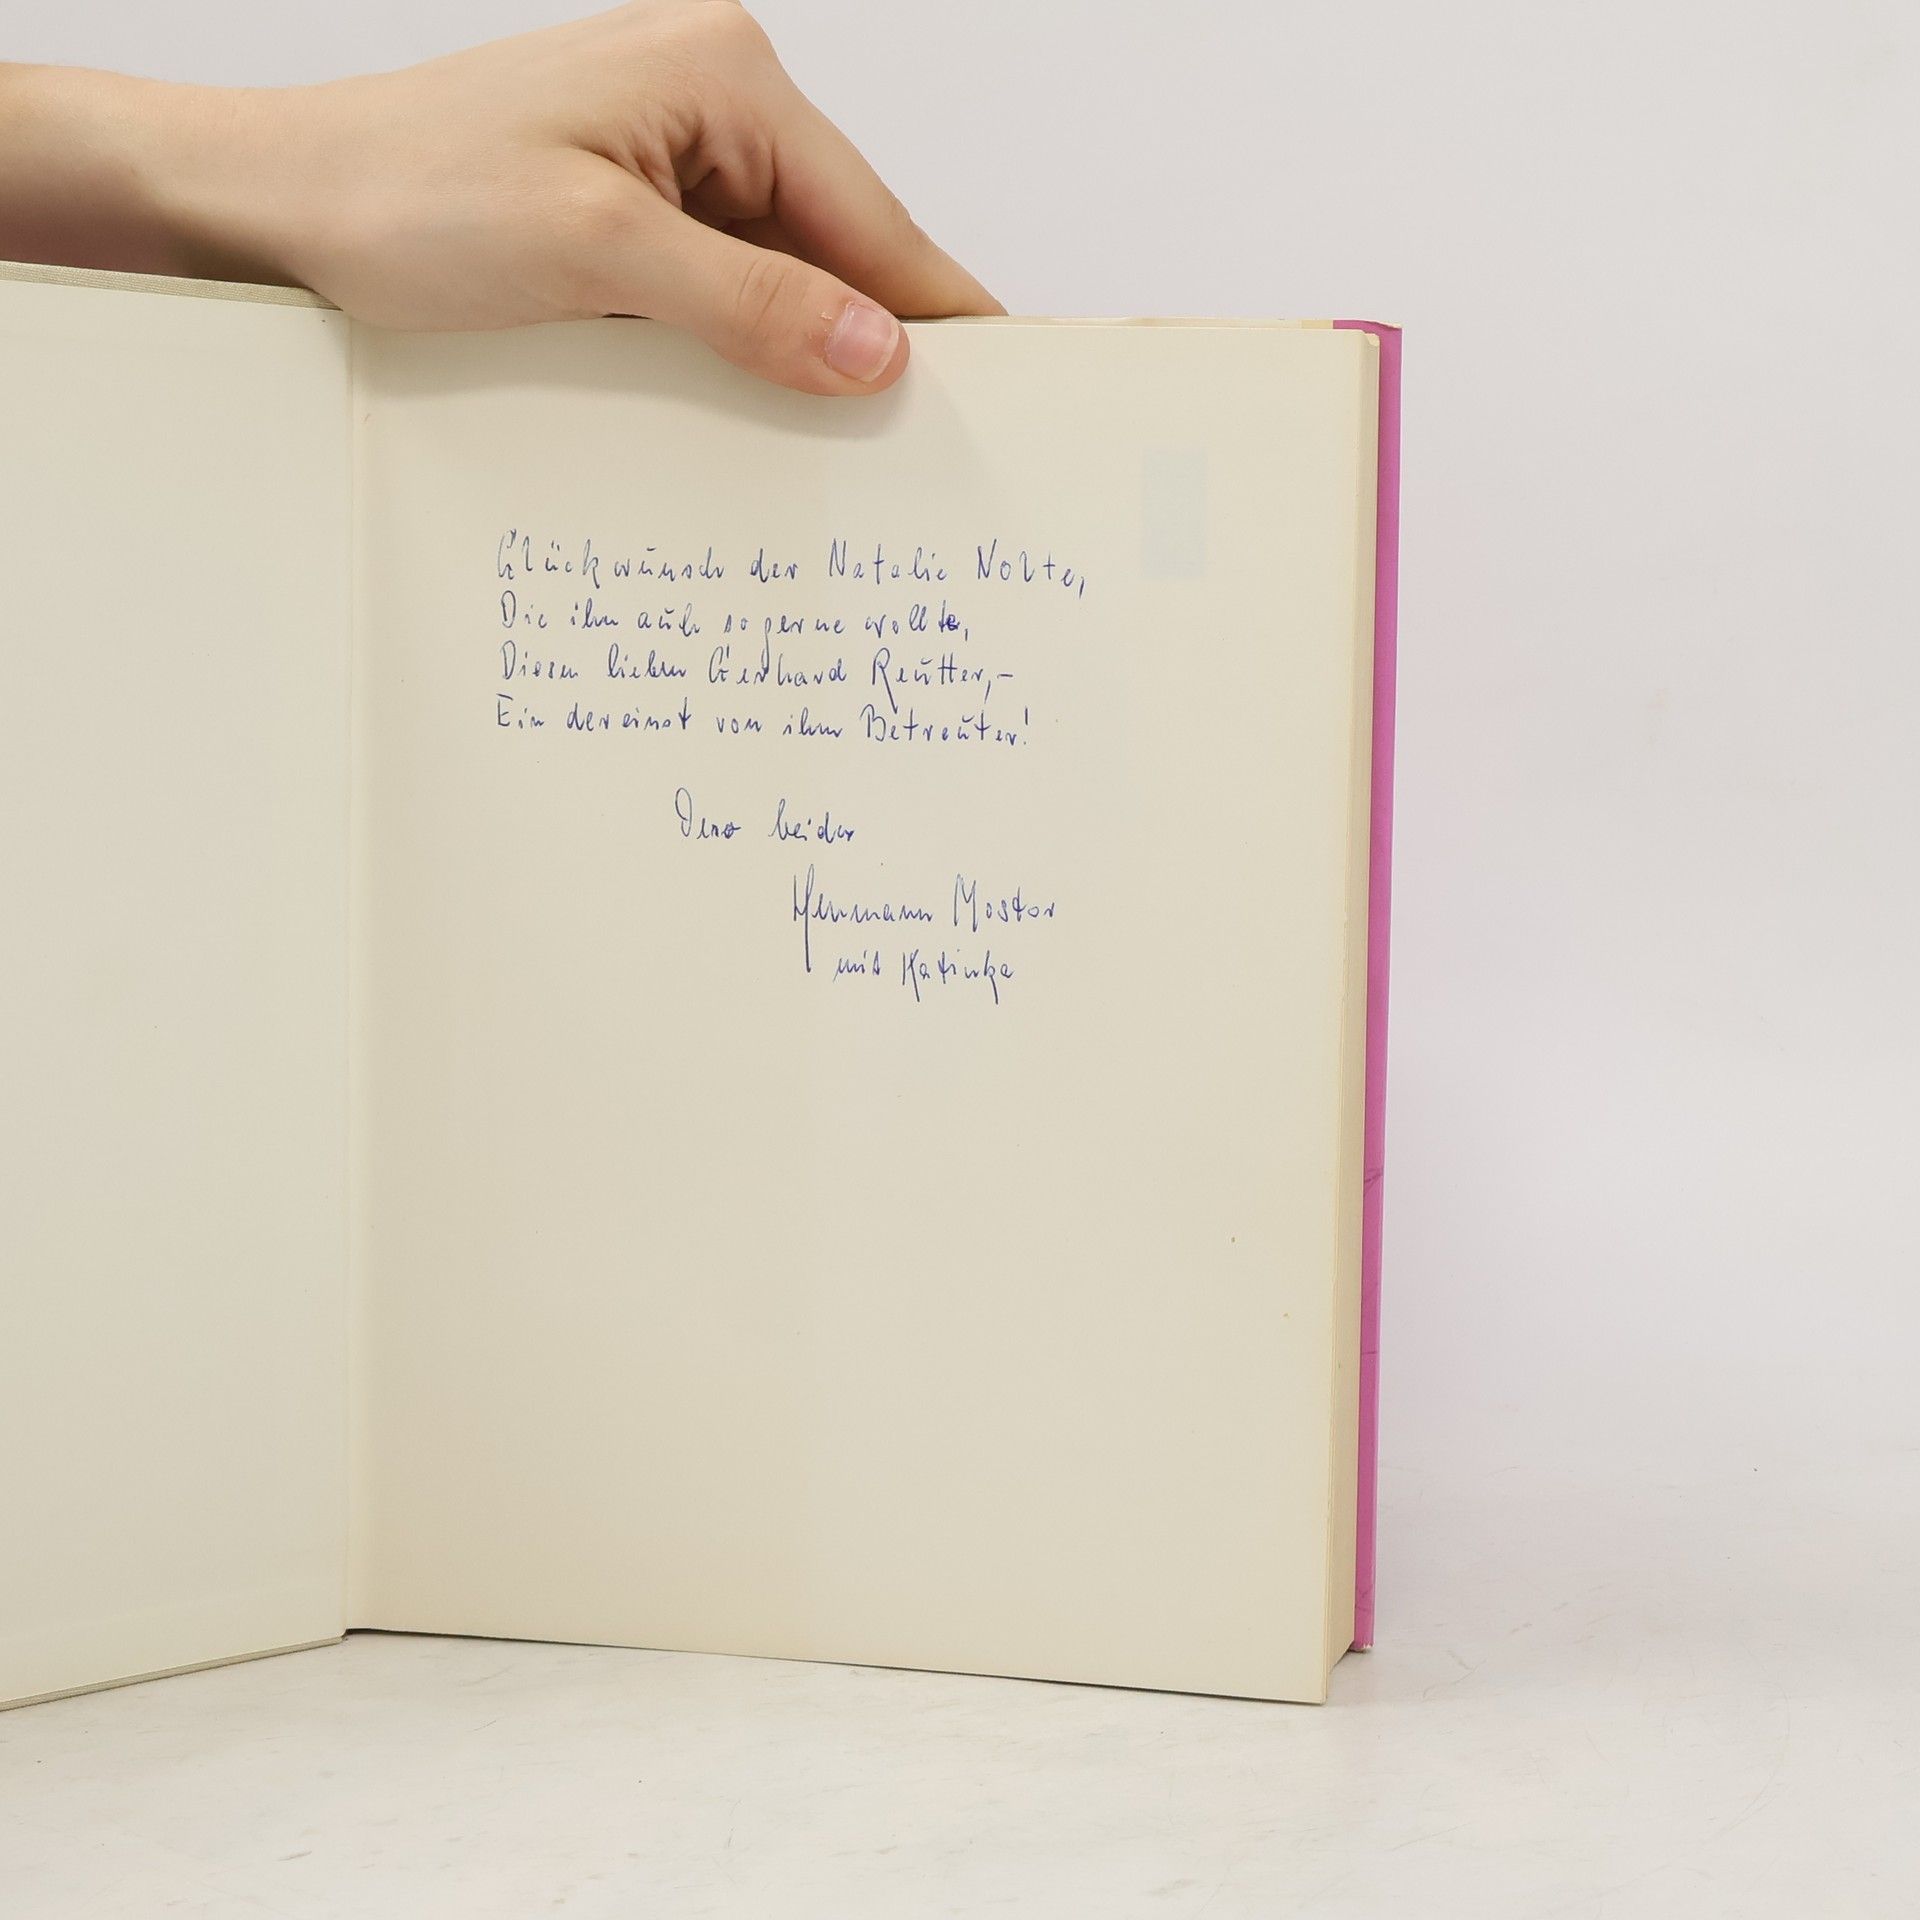 Glückwunsch der Natalie Nolte,
Die ihn auch so gerne wollte,
Diesen lieben Gerhard Reutter,–
Ein dereinst von ihm Betreuter!
Dero beider
Hermann Mostar
mit Katinka